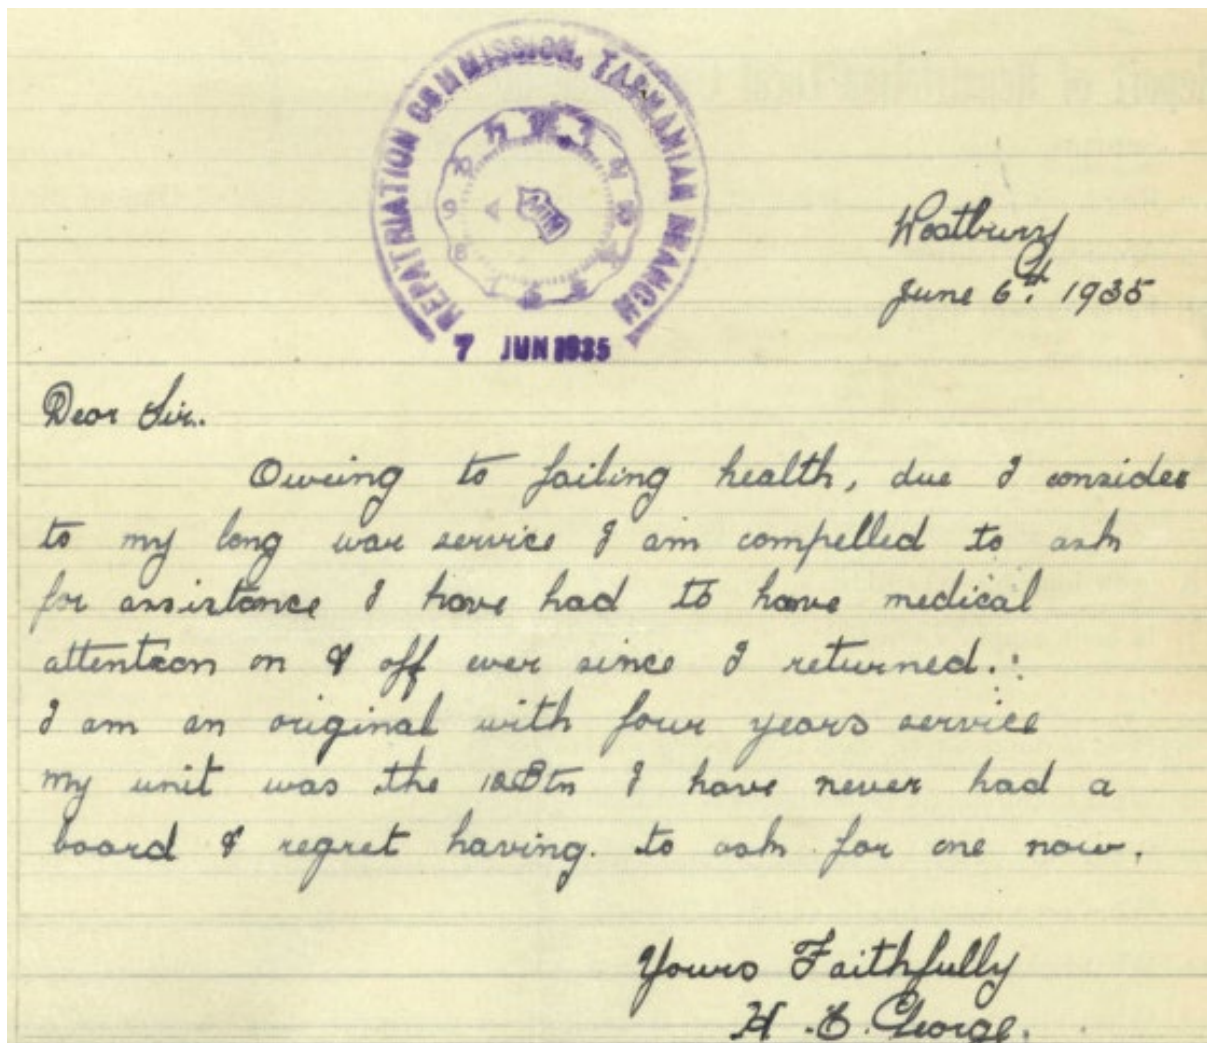 REPATRIATION COMMISSION, TASMANIAN BRANCH
7 JUN 1935
Westbury
June 6th 1935
Dear Sir.
Owing to failing health, due I consider
to my long war service I am compelled to ask
for assistance I have had to have medical
attention on & off ever since I returned.
I am an original with four years service
my unit was the 12Btn I have never had a
board & regret having. to ask for one now.
Yours Faithfully
H. E. George.